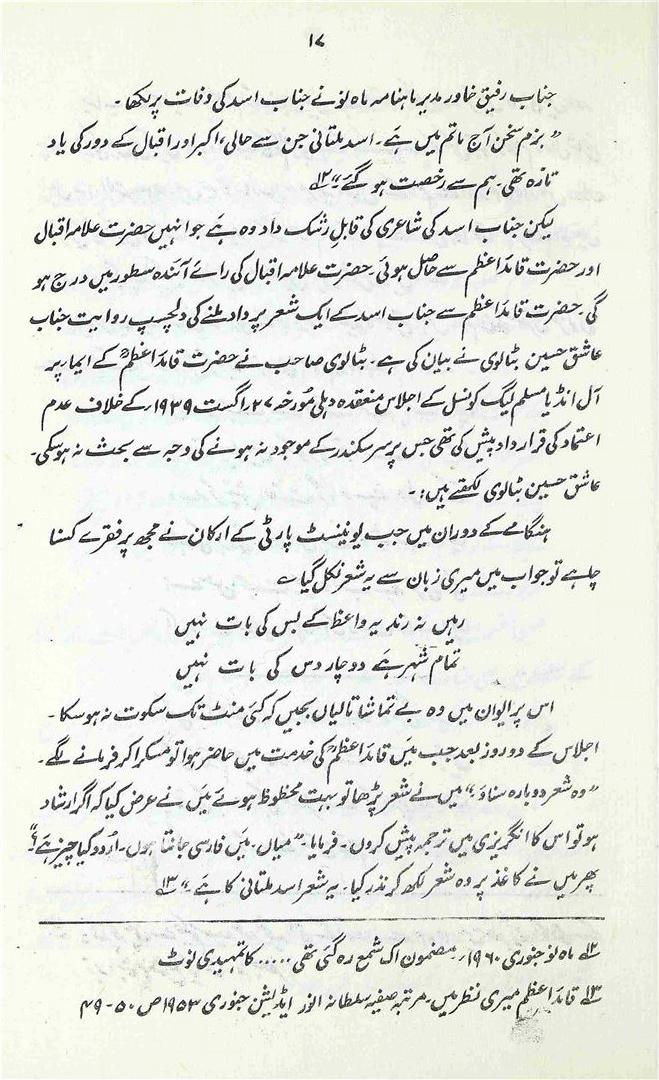 ۱۷
جناب رفیق خاور مدیر ماہنامہ ماہ نو نے جناب اسد کی وفات پر لکھا۔
”بزم سخن آج ماتم میں ہے۔ اسد ملتانی جن سے حالی، اکبر اور اقبال کے دور کی یاد
تازہ تھی۔ ہم سے رخصت ہو گئے“ ۱۲؎
لیکن جناب اسد کی شاعری کی قابلِ رشک داد وہ ہے جو انہیں حضرت علامہ اقبال
اور حضرت قائداعظم سے حاصل ہوئی۔ حضرت علامہ اقبال کی رائے آئندہ سطور میں درج ہو
گی۔ حضرت قائداعظم سے جناب اسد کے ایک شعر پر داد ملنے کی دلچسپ روایت جناب
عاشق حسین بٹالوی نے بیان کی ہے۔ بٹالوی صاحب نے حضرت قائداعظمؒ کے ایما پر
آل انڈیا مسلم لیگ کونسل کے اجلاس منعقدہ دہلی مُورخہ ۲۷؍اگست ۱۹۳۹ء کے خلاف عدم
اعتماد کی قرار داد پیش کی تھی جس پر سر سکندر کے موجود نہ ہونے کی وجہ سے بحث نہ ہو سکی۔
عاشق حسین بٹالوی لکھتے ہیں:۔
ہنگامے کے دوران میں جب یونینسٹ پارٹی کے ارکان نے مجھ پر فقرے کسنا
چاہے تو جواب میں میری زبان سے یہ شعر نکل گیا ؎
رہیں نہ رند یہ واعظ کے بس کی بات نہیں
تمام شہر ہے دو چار دس کی بات نہیں
اس پر ایوان میں وہ بے تماشا تالیاں بجیں کہ کئی منٹ تک سکوت نہ ہو سکا۔
اجلاس کے دو روز بعد جب میَں قائداعظمؒ کی خدمت میں حاضر ہوا تو مسکرا کر فرمانے لگے۔
”وہ شعر دوبارہ سناؤ،“ میں نے شعر پڑھا تو بہت محظوظ ہوئے میَں نے عرض کیا کہ اگر ارشاد
ہو تو اس کا انگریزی میں ترجمہ پیش کروں۔ فرمایا۔ ”میاں۔ میَں فارسی جانتا ہوں۔ اُردو کیا چیز ہے؟“
پھر میں نے کاغذ پر وہ شعر لکھ کر نذر کیا۔ یہ شعر اسد ملتانی کا ہے۔“ ۱۳؎
۱۲؎ ماہ نو جنوری ۱۹۶۰ء۔ مضمون اک شمع رہ گئی تھی ..... کا تمہیدی نوٹ
۱۳؎ قائداعظم میری نظر میں۔ مرتبہ صفیہ سلطانہ انور ایڈیشن جنوری ۱۹۵۳ ص ۵۰-۴۹